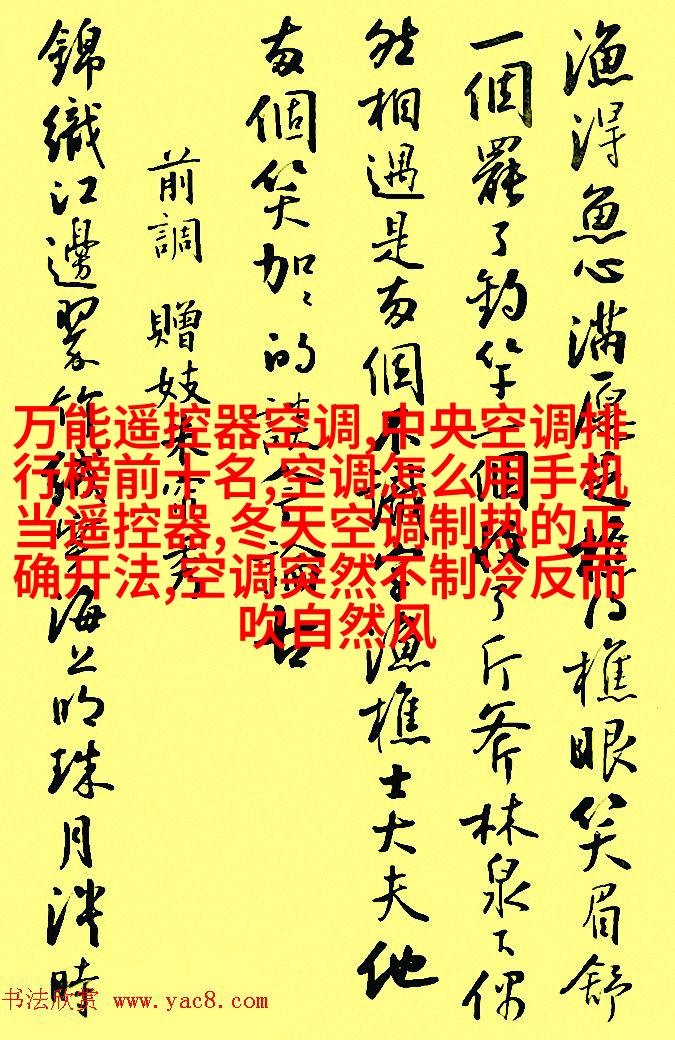 漁得魚心滿愿足樵得樵眼笑眉舒
一個罷了釣竿一個收了斤斧林泉下偶
然相遇是两個不識字漁樵士大夫他
两個笑加加的談今論古
前調 贈妓朱簾秀
錦織江邊翠竹絨穿海上明珠月淡時
万能遥控器空调,中央空调排
行榜前十名,空调怎么用手机
当遥控器,冬天空调制热的正
确开法,空调突然不制冷反而
吹自然风
书法欣赏 www.yac8.com